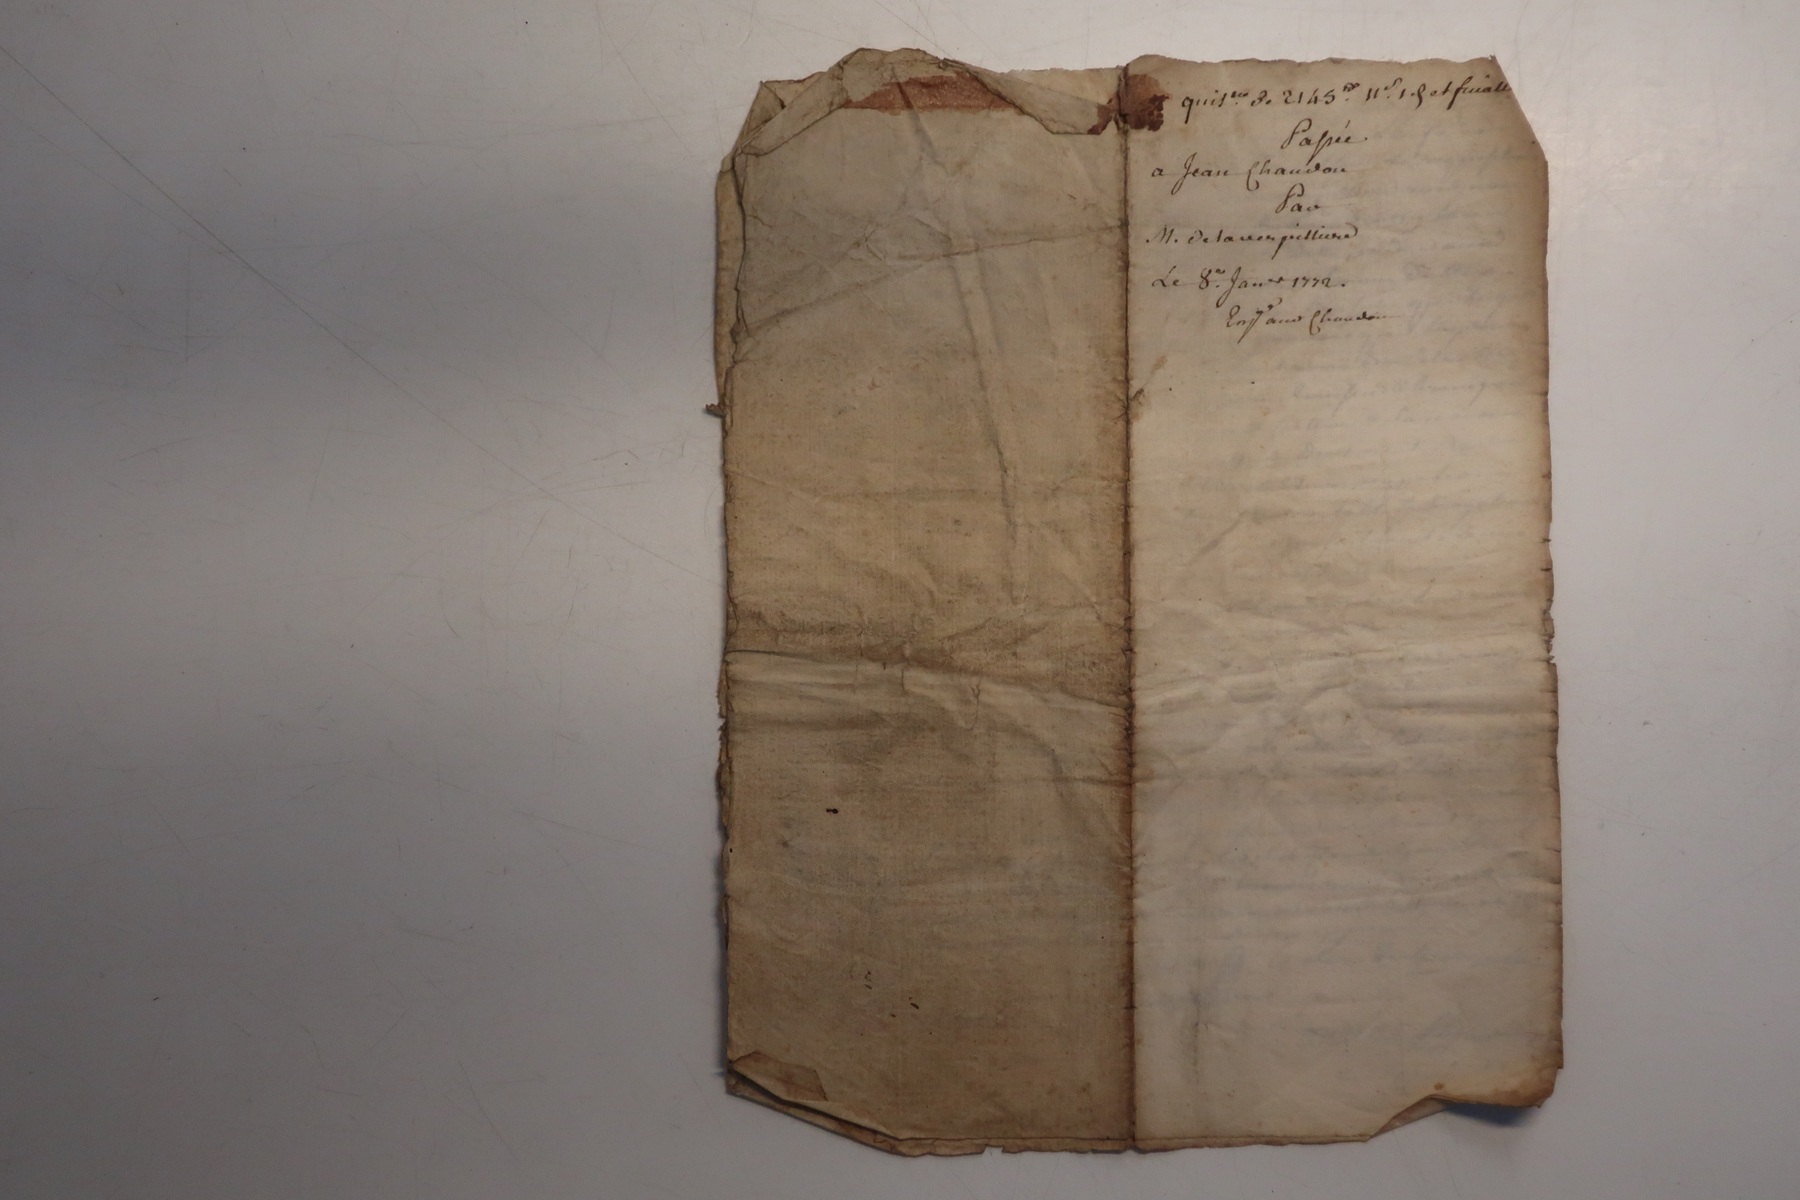 quit.ce de 2145.tt 11.s 1.d et finalle
Passée
a Jean Chaudon
Par
M. delaverpilliere
Le 8.e Janv.er 1772.
Chaudon